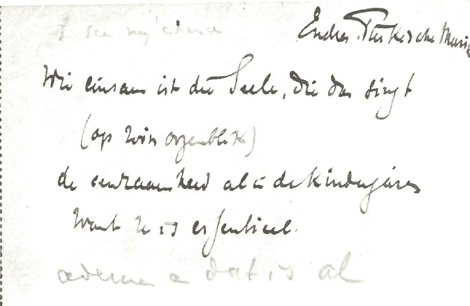 I see my chance
Endres Türkische Musi
Wie einsam ist die Seele, die das singt
(op zoo'n oogenblik)
de eenzaamheid als in de kinderjaren
Want ze is essentieel.
ademen en dat is al